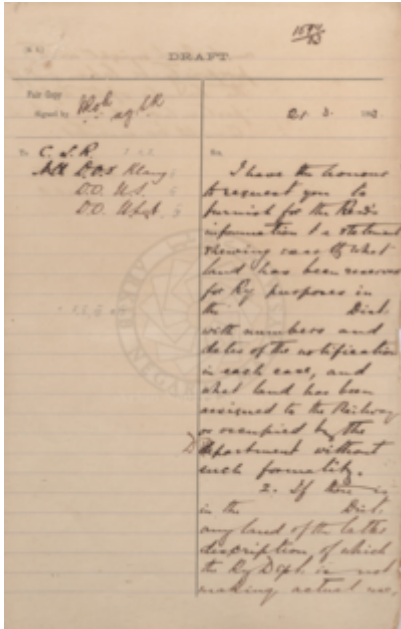 1584/93
DRAFT.
Fair Copy
Signed by
21 3 189
To C. S. R.
All D.O.s Klang
D.O. U.S.
D.O. U.Lgt.
Sir,
I have the honour
to request you to
furnish for the Res's
information a statement
shewing case by what
land has been reserved
for Ry purposes in
the Dist.
with numbers and
dates of the notification
in each case, and
what land has been
assigned to the Railway
or occupied by the
Department without
such formality.
2. If there is
in the Dist.
any land of the latter
description, of which
the Ry Dept. is not
making actual use,